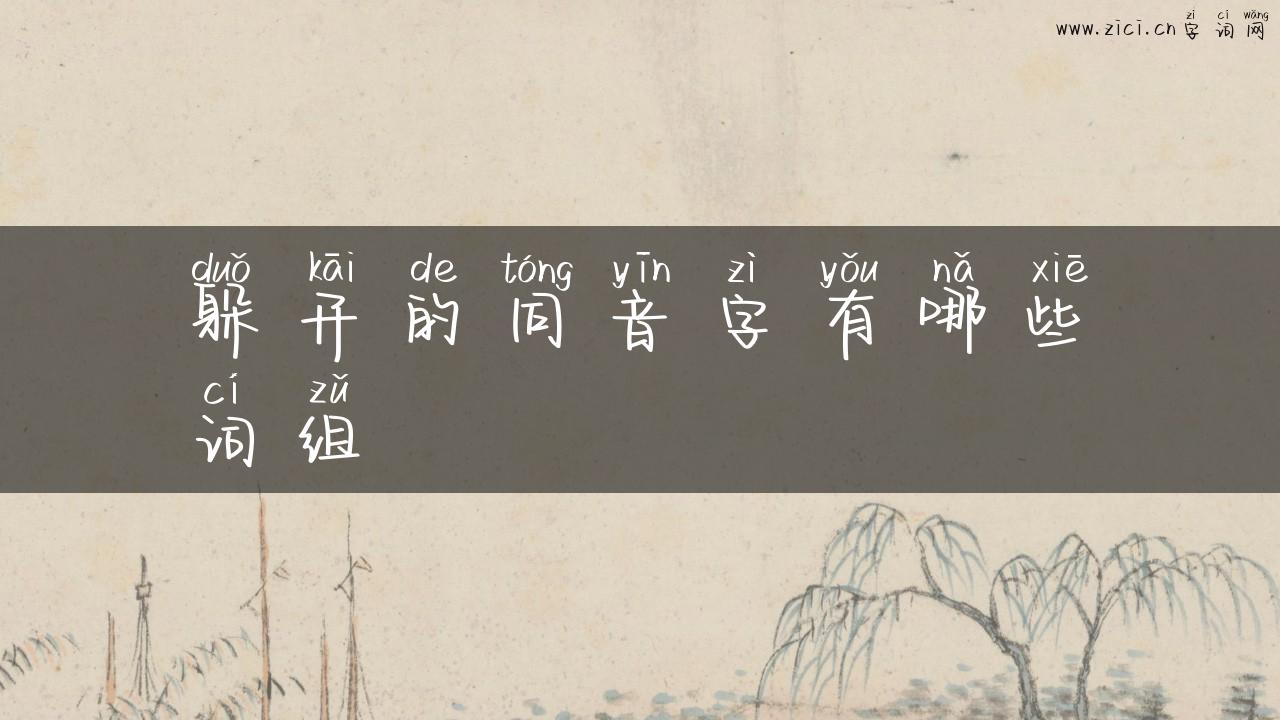 zì cí wǎng
www.zici.cn 字词网
duǒ kāi de tóng yīn zì yǒu nǎ xiē
躲开的同音字有哪些
cí zǔ
词组